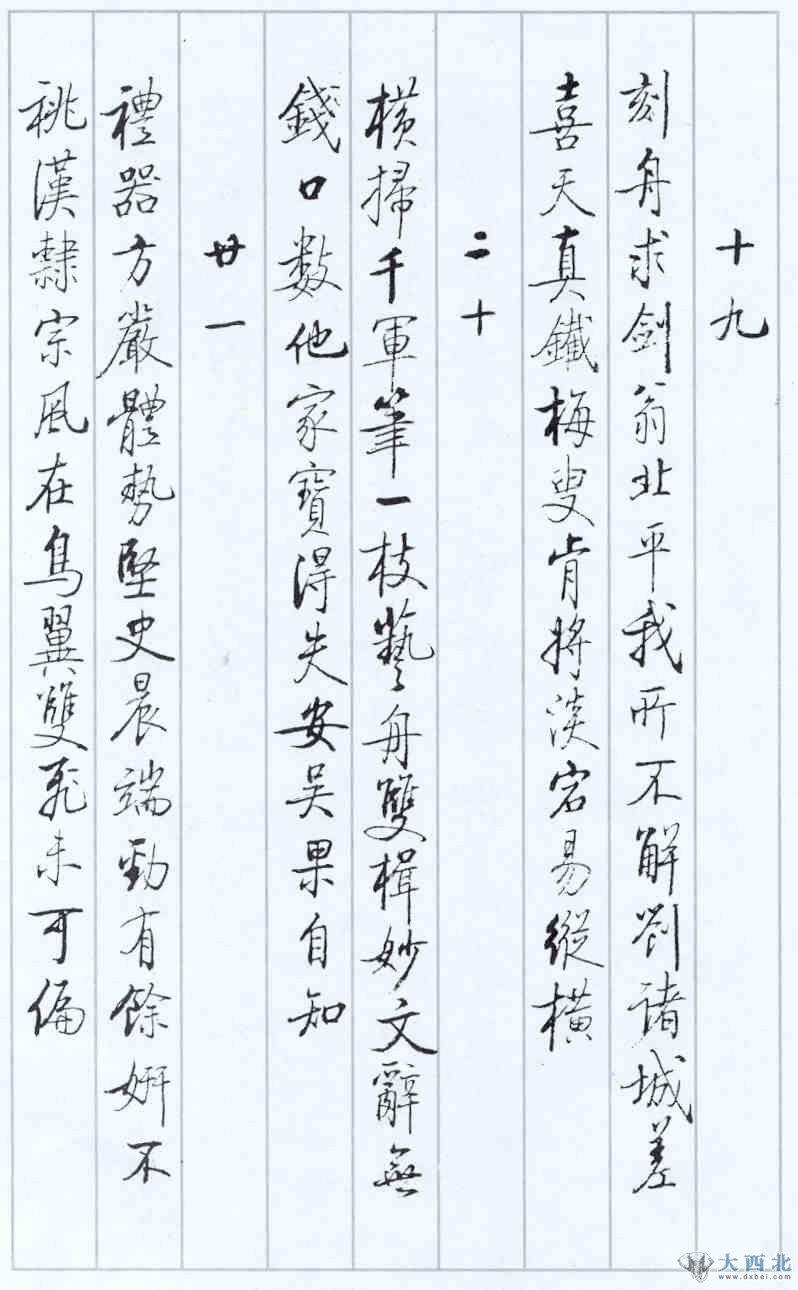 十九
刻舟求劍翁北平我所不解劉諸城差
喜天真鐵梅叟肯將淡宕易縱橫
二十
橫掃千軍筆一枝藝舟雙楫妙文辭無
錢口數他家寶得失安吳果自知
廿一
禮器方嚴體勢堅史晨端勁有餘妍不
祧漢隸宗風在鳥翼雙飛未可偏
大西北
www.dxbei.com